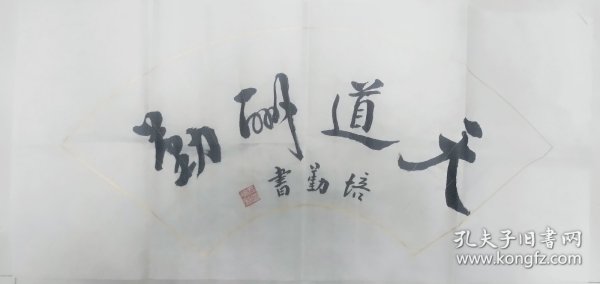 天道酬勤
培勤書
孔夫子旧書网
www.kongfz.com